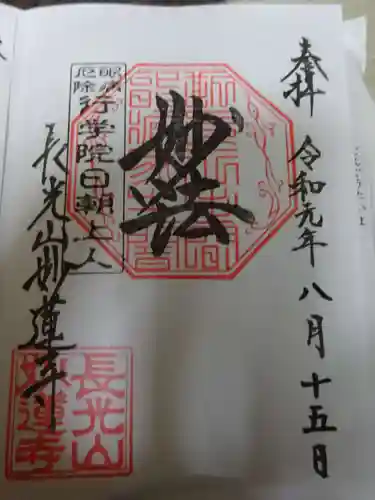 奉拝 令和元年八月十五日
妙法
眼病
厄除
行学院日朝上人
長光山妙蓮寺
長光山
妙蓮寺